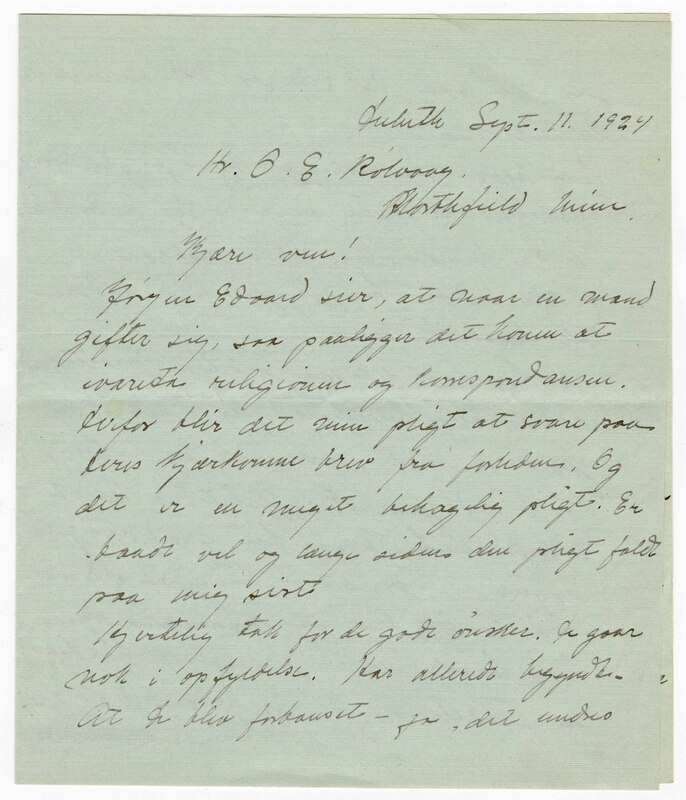 Duluth Sept. 11. 1924
Hr. O. E. Rölvaag.
Northfield Minn.
Kjære ven!
Jörgen Edvard sier, at naar en mand
gifter sig, saa paaligger det honom at
ivareta religionen og korrespondansen.
Derfor blir det min pligt at svare paa
deres kjærkomne brev fra forleden. Og
det er en meget behagelig pligt. Er
baade vel og længe siden den pligt faldt
paa mig sist
Hjertelig tak for de gode önsker. De gaar
nok i opfyldelse. Har allerede begyndt.
At De blev forbauset – ja, det undres